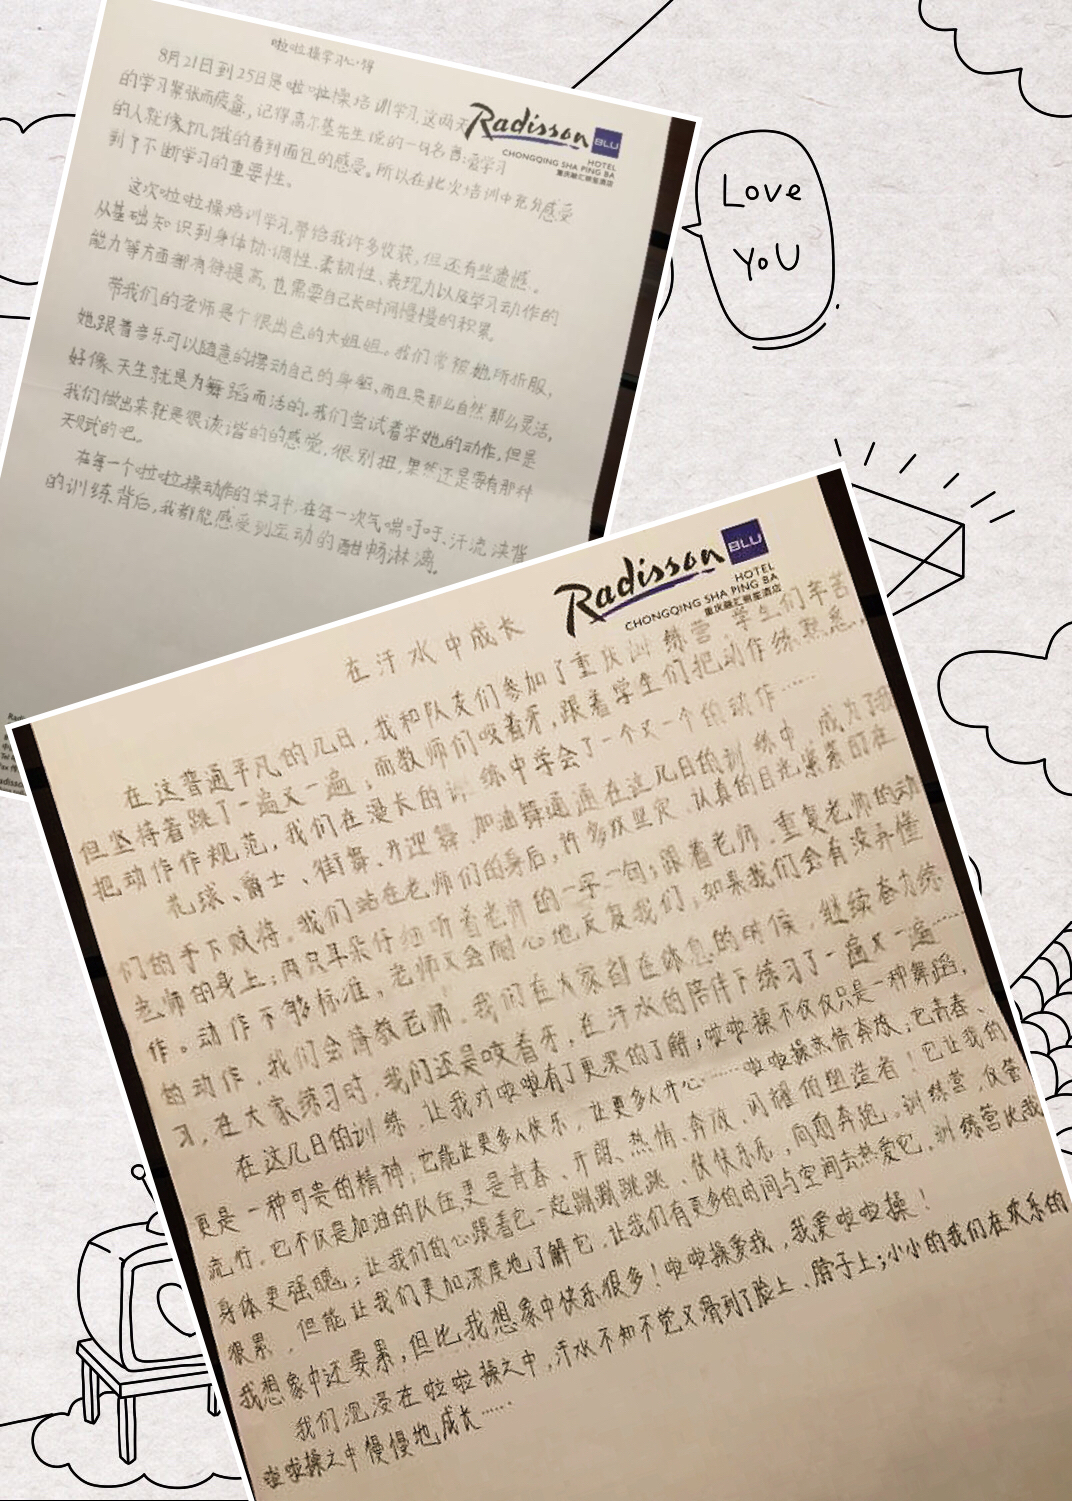 啦啦操学习心得
8月21日到25日是啦啦操培训学习,这两天
的学习紧张而疲惫,记得高尔基先生说的一句名言:爱学习
的人就像饥饿的看到面包的感受。所以在此次培训中充分感受
到了不断学习的重要性。
这次啦啦操培训学习,带给我许多收获,但还有些遗憾。
从基础知识到身体协调性、柔韧性、表现力以及学习动作的
能力等方面都有待提高,也需要自己长时间慢慢的积累。
带我们的老师是个很出色的大姐姐。我们常被她所折服,
她跟着音乐可以随意的摆动自己的身躯,而且是那么自然那么灵活,
好像天生就是为舞蹈而活的。我们尝试着学她的动作,但是
我们做出来就是很诙谐的的感觉,很别扭,果然还是要有那种
天赋的吧。
在每一个啦啦操动作的学习中,在每一次气喘吁吁、汗流浃背
的训练背后,我都能感受到运动的酣畅淋漓。
Radisson
BLU
HOTEL
CHONGQING SHA PING BA
重庆融汇丽笙酒店
Love
YoU
Radisson
BLU
HOTEL
CHONGQING SHA PING BA
重庆融汇丽笙酒店
在汗水中成长
在这普通平凡的几日,我和队友们参加了重庆训练营,学生们辛苦
但坚持着跳了一遍又一遍;而教师们咬着牙,跟着学生们把动作练熟悉,
把动作作规范,我们在漫长的训练中学会了一个又一个的动作……
花球、爵士、街舞、开迎舞、加油舞通通在这几日的训练中,成为了我
们的手下败将。我们站在老师们的身后,许多双坚定、认真的目光紧紧盯在
老师的身上;两只耳朵仔细听着老师的一字一句;跟着老师,重复老师的动
作。动作不够标准,老师又会耐心地反复我们;如果我们会有没弄懂
的动作,我们会请教老师。我们在大家都在休息的时候,继续奋力练
习,在大家练习时,我们还是咬着牙,在汗水的陪伴下练习了一遍又一遍……
在这几日的训练,让我对啦啦有了更深的了解;啦啦操不仅仅只是一种舞蹈,
更是一种可贵的精神;它能让更多人快乐,让更多人开心……啦啦操热情奔放;它青春、
流行,它不仅是加油的队伍,更是青春、开朗、热情、奔放、闪耀的塑造者!它让我的
身体更强魄;让我们的心跟着它一起蹦蹦跳跳、快快乐乐,向前奔跑。训练营,仅管
很累,但能让我们更加深度地了解它,让我们有更多的时间与空间去热爱它,训练营比我
我想象中还要累,但比我想象中快乐很多!啦啦操爱我,我爱啦啦操!
我们沉浸在啦啦操之中,汗水不知不觉又滑到了脸上、脖子上;小小的我们在欢乐的
啦啦操之中慢慢地成长……